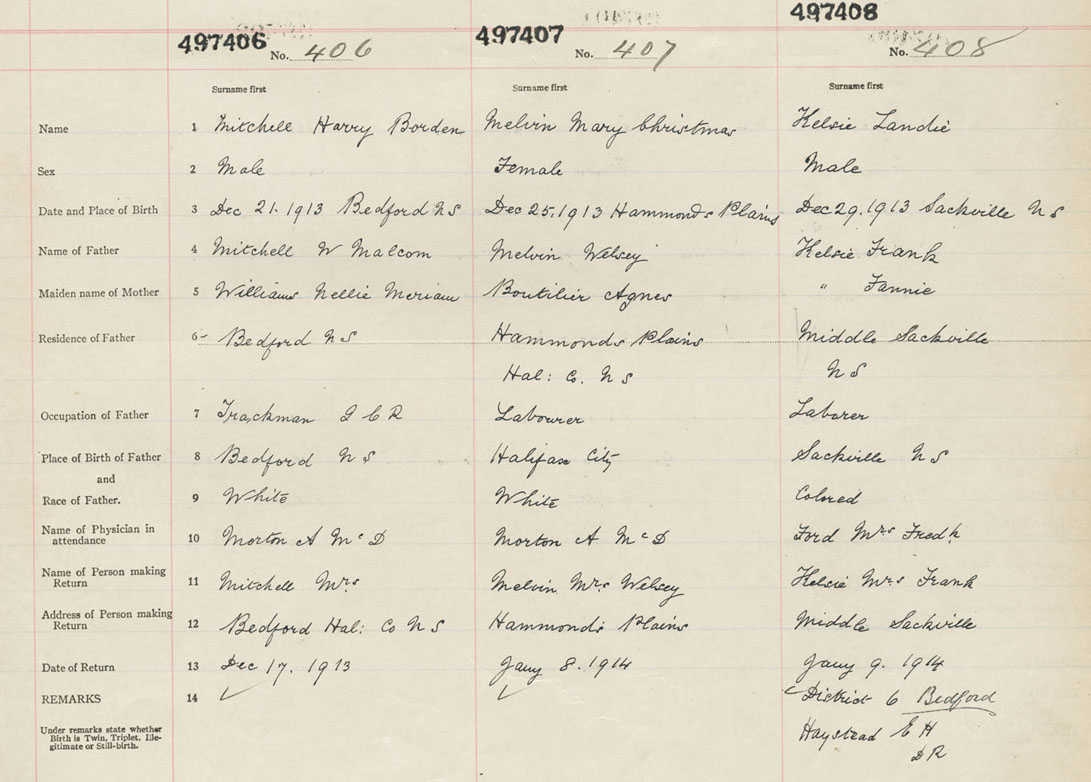 497406 497407 497408
No. 406 No. 407 No. 408
Surname first Surname first Surname first
Name 1 Mitchell Harry Borden Melvin Mary Christmas Kelsie Landie
Sex 2 Male Female Male
Date and Place of Birth 3 Dec 21. 1913 Bedford N S Dec 25, 1913 Hammonds Plains Dec 29. 1913 Sackville N S
Name of Father 4 Mitchell W Malcom Melvin Welsey Kelsie Frank
Maiden name of Mother 5 Williams Nellie Meriam Boutilier Agnes " Fannie
Residence of Father 6 Bedford N S Hammonds Plains Middle Sackville
Hal: Co. N S N S
Occupation of Father 7 Trackman I C R Labourer Laborer
Place of Birth of Father 8 Bedford N S Halifax City Sackville N S
and
Race of Father. 9 White White Colored
Name of Physician in
attendance 10 Morton A McD Morton A McD Ford Mrs Fredk
Name of Person making
Return 11 Mitchell Mrs. Melvin Mrs. Welsey Kelsie Mrs Frank
Address of Person making
Return 12 Bedford Hal: Co N S Hammonds Plains Middle Sackville
Date of Return 13 Dec 17. 1913 Jany 8. 1914 Jany 9. 1914
REMARKS 14 District 6 Bedford
Under remarks state whether
Birth is Twin, Triplet, Ille-
gitimate or Still-birth.
Haystead E H
D R